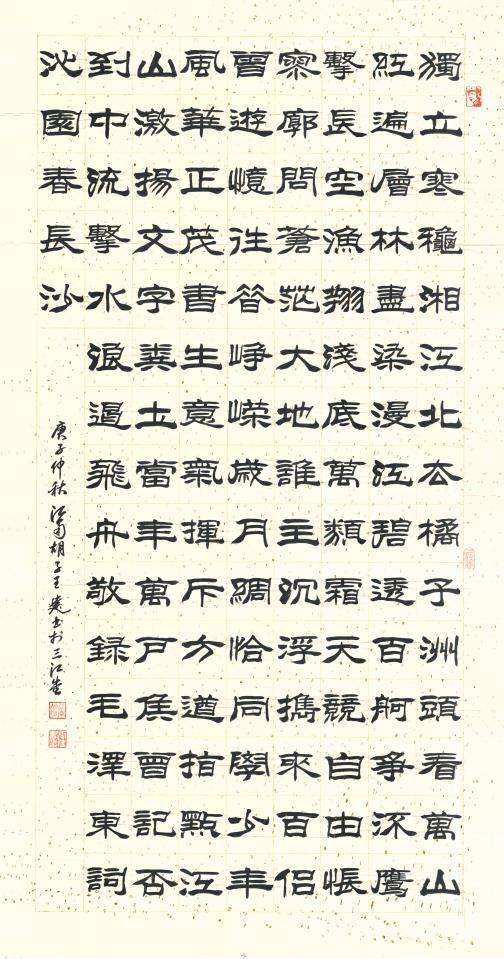 獨立寒穐湘江北去橘子洲頭看萬山
紅遍層林盡染漫江碧透百舸爭流鷹
擊長空漁翔淺底萬類霜天競自由悵
寥廓問蒼茫大地誰主沉浮攜來百侶
曾遊憶往昔崢嶸歲月稠恰同學少年
風華正茂書生意氣揮斥方遒指點江
山激揚文字糞土當年萬戶侯曾記否
到中流擊水浪遏飛舟敬録毛澤東詞
沁園春長沙
庚子仲秋江南胡子王书於三江堂